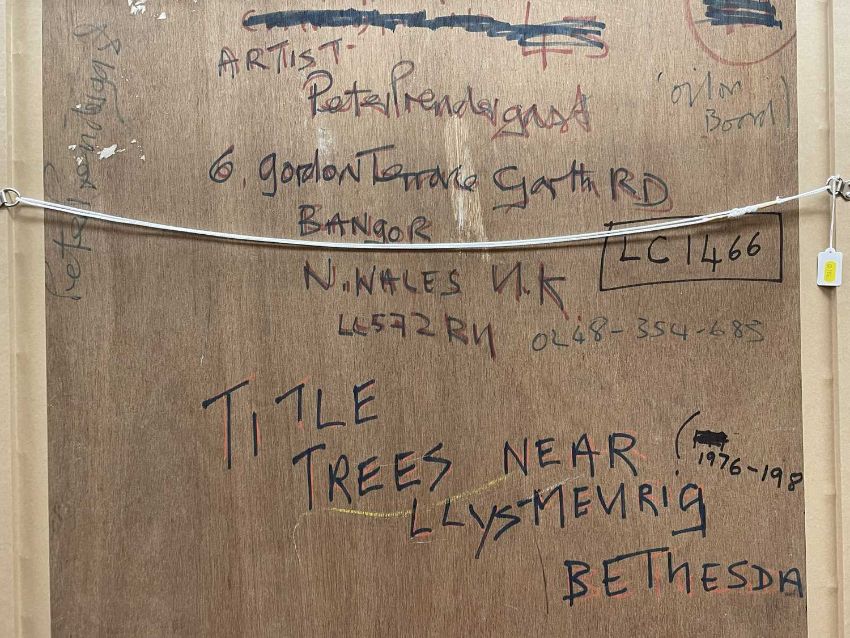 ARTIST
Peter Prendergast
(oil on
Board)
6. gordon Terrace Garth RD
BANGOR
N. WALES U.K
LC1466
LL572RU
0248-354-685
TITLE
TREES NEAR
(1976-198
LLYS-MEURIG
BETHESDA
Peter Prendergast